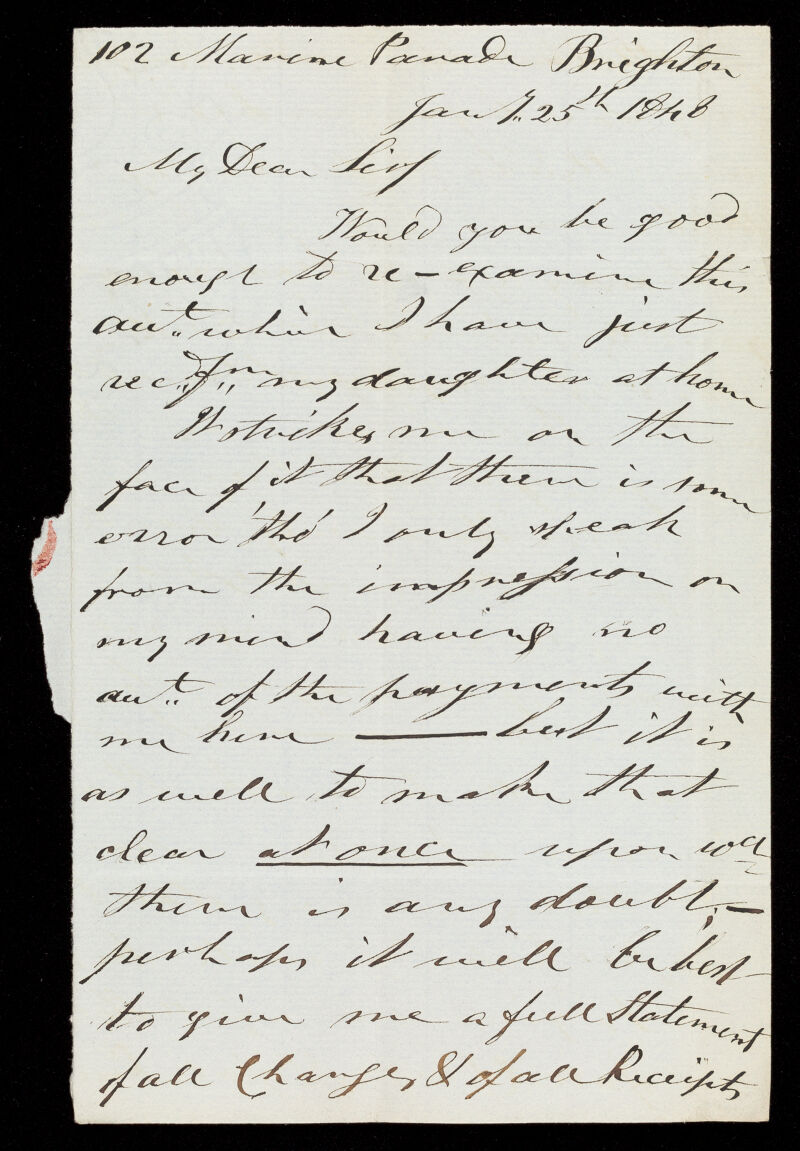 102 Marine Parade Brighton
Jany. 25th 1848
My Dear Sir/
Would you be good
enough to re-examine this
acct. which I have just
recd. fm. my daughter at home
It strikes me on the
face of it that there is some
error tho' I only speak
from the impression on
my mind having no
acct. of the payments with
me here — but it is
as well to make that
clear at once upon wch
there is any doubt, —
perhaps it will be best
to give me a full Statement
of all Charges & of all Receipts